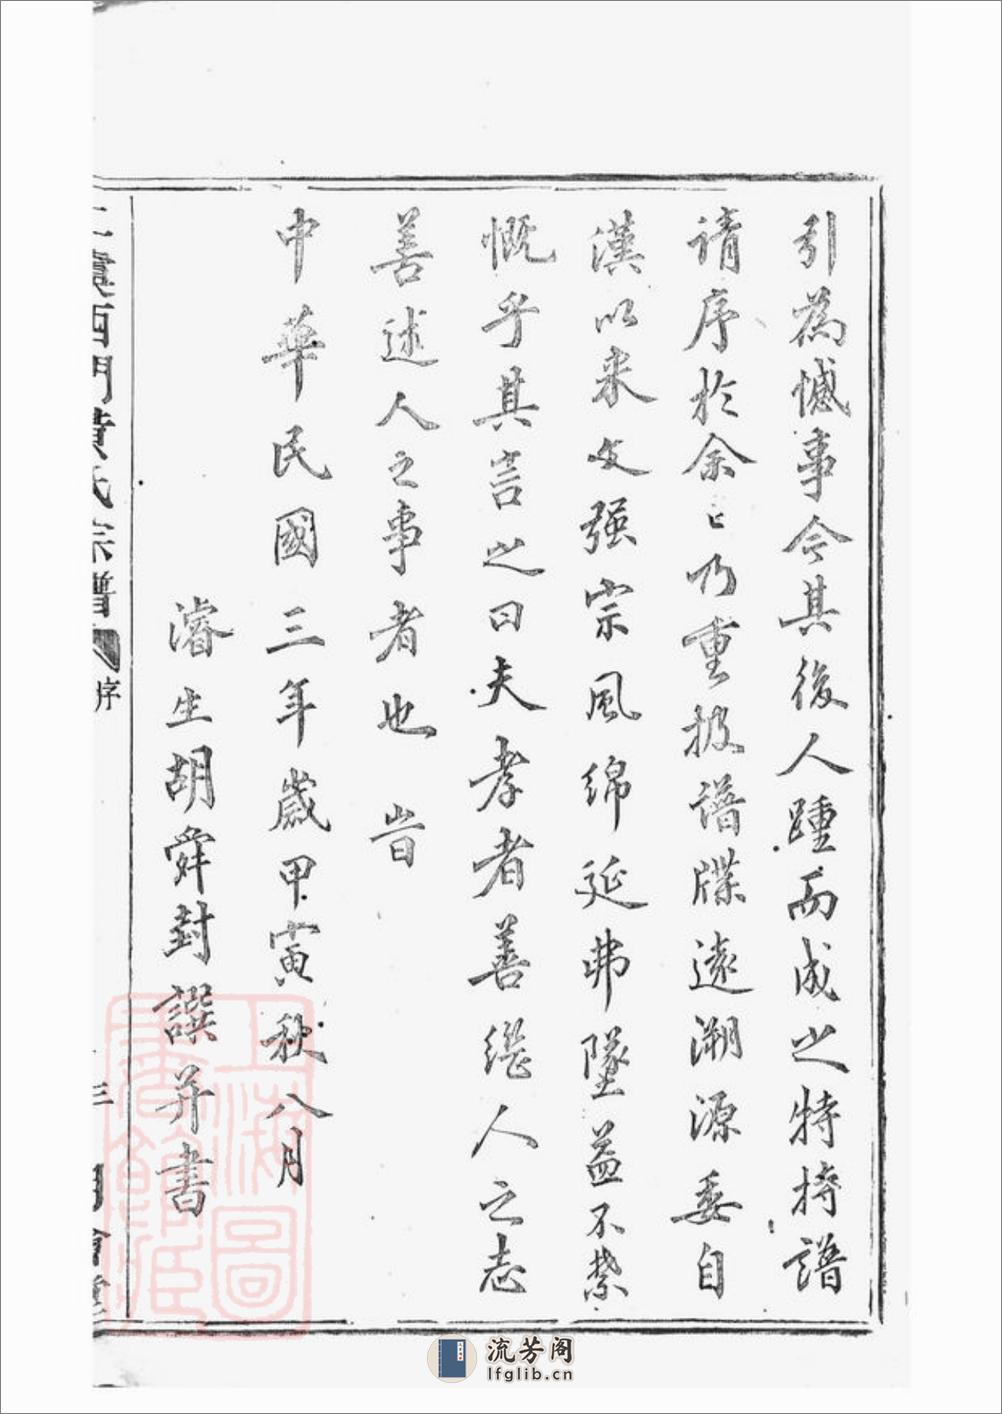 引為憾事今其後人踵而成之特持譜
請序於余々乃重披譜牒遠溯源委自
漢以来文强宗風綿延弗墜益不禁
慨乎其言之曰夫孝者善繼人之志
善述人之事者也 旹
中華民國三年歲甲寅秋八月
濬生胡舜封譔并書
虞西門黄氏宗譜 序
三
上海圖書館藏
流芳阁
lfglib.cn